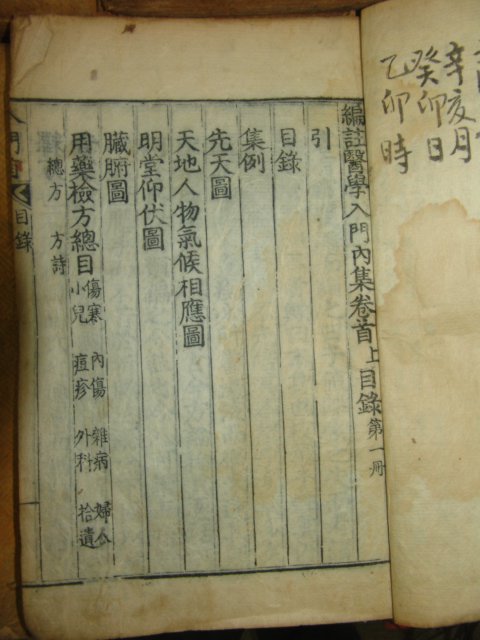 辛亥月
癸卯日
乙卯時
編註醫學入門內集卷首上目錄 第一冊
引
目錄
集例
先天圖
天地人物氣候相應圖
明堂仰伏圖
臟腑圖
用藥檢方總目 傷寒 內傷 雜病 婦人
小兒 痘疹 外科 拾遺
總方 方詩
入門 目錄